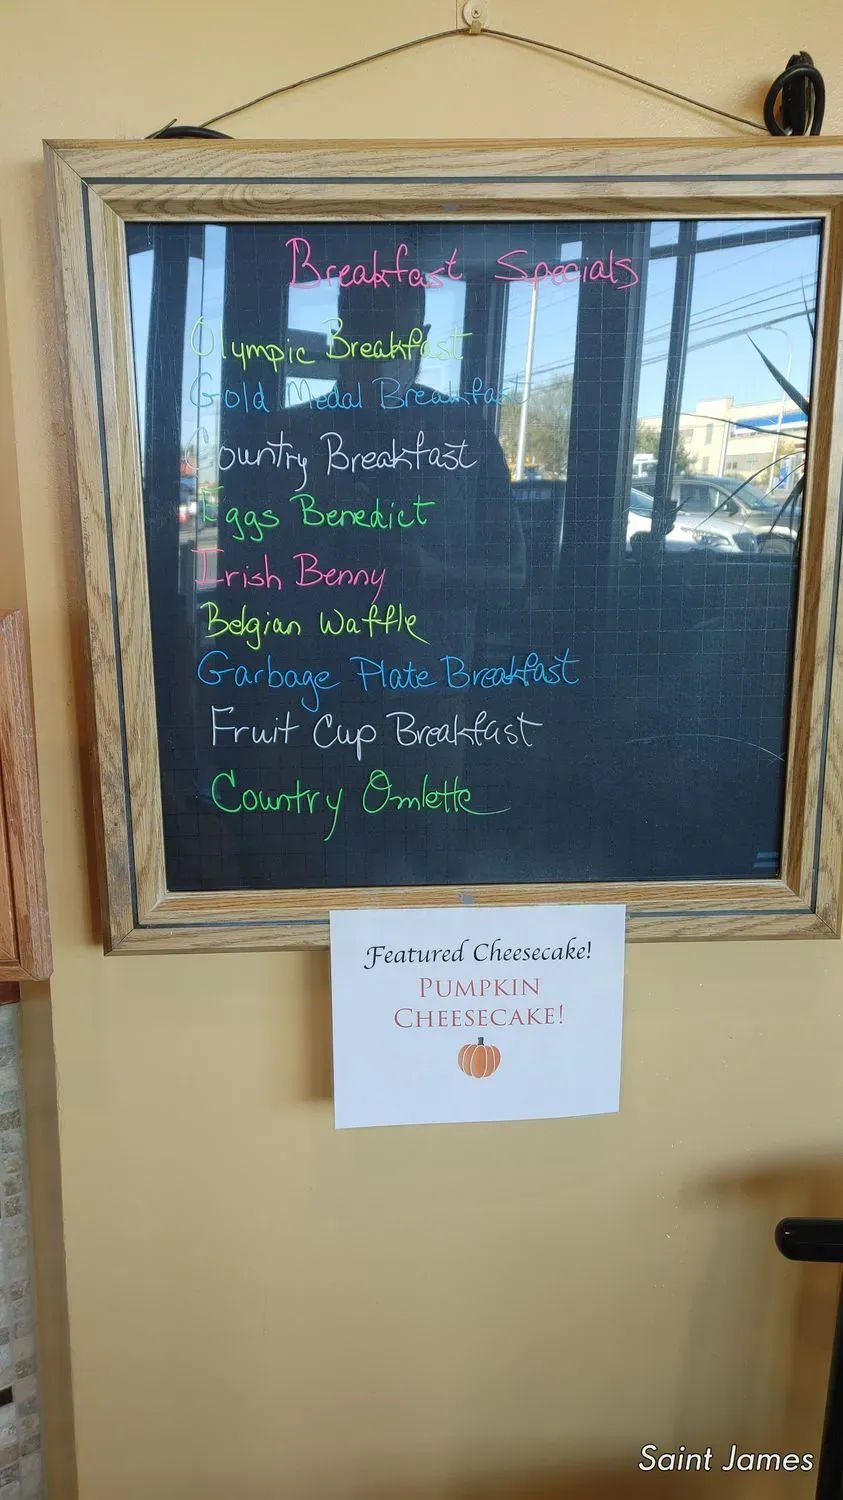 Breakfast Specials
Olympic Breakfast
Gold Medal Breakfast
Country Breakfast
Eggs Benedict
Irish Benny
Belgian Waffle
Garbage Plate Breakfast
Fruit Cup Breakfast
Country Omlette
Featured Cheesecake!
PUMPKIN
CHEESECAKE!
Saint James